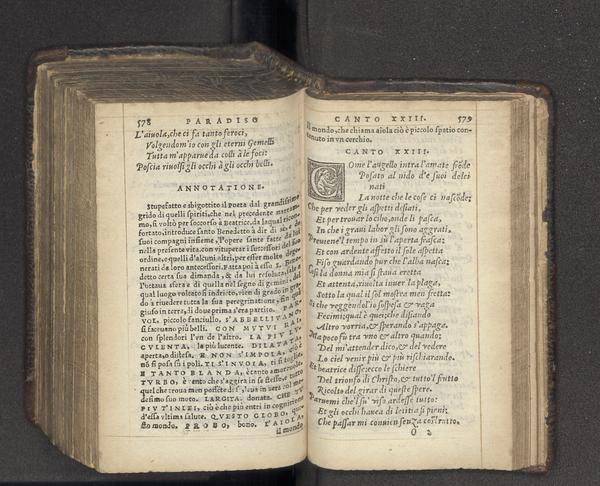 578 PARADISO
L'aiuola, che ci fa tanto feroci,
Volgendom'io con gli eterni Gemelli
Tutta m'apparue da colli à le foci:
Poscia riuolsi gli occhi à gli occhi belli.
ANNOTATIONE.
Stupefatto e sbigottito il Poeta dal grandissimo
grido di quelli spiriti, che nel precedente
mo, si voltò per soccorso à Beatrice, da laqual ricon-
fortato, introduce santo Benedetto à dir di se, e de
suoi compagni insieme, l'opere sante fatte da lui
nella presente vita, con vituperar i successori del suo
ordine, e quelli d'alcuni altri, per esser molto dege-
nerati da loro antecessori. Fatta poi à esso S. Bene-
detto certa sua dimanda, & da lui resoluta, sale a
l'ottaua sfera e di quella nel segno di gemini, dal
qual luogo voltatosi indrieto, vien di grado in gra-
do à riuedere tutta la sua peregrinatione, fin qua
giuso in terra, di doue prima s'era partito. PAR-
VOL. piccolo fanciullo, S'ABBELLIVANO,
si faceuano più belli. CON MVTVI RAI,
con splendori l'vn de l'altro. LA PIV LV-
CVLENTA, la più lucente. DILATATA,
aperta, o distesa. E NON S'IMPOLA, cioè
nō si posa sù i poli. TI S'INVOLA, ti si toglie.
E TANTO BLANDA, e tanto amoreuole.
TVRBO, è vento che s'aggira in se stesso, e tutto
quel che troua men possente di se, leua in verso col me-
desimo suo moto. LARGITA. donata. CHE TV
PIV T'INLEI, ciò è che più entri in cognitione
d'essa vltima salute. QVESTO GLOBO, que-
sto mondo. PROBO, bono. L'AIOLA,
il mondo
CANTO XXIII. 579
Il mondo, che chiama aiola ciò è piccolo spatio con-
tenuto in vn cerchio.
CANTO XXIII.
Come l'augello intra l'amate frōde
Posato al nido d'e suoi dolci
nati
La notte che le cose ci nascōde;
Che per veder gli aspetti desiati,
Et per trouar lo cibo, onde li pasca,
In che i graui labor gli sono aggrati,
Preuiene'l tempo in sù l'aperta frasca;
Et con ardente affetto il sole aspetta
Fiso guardando pur che l'alba nasca;
Così la donna mia si staua eretta
Et attenta, riuolta inuer la plaga,
Sotto la qual il sol mostra men fretta:
Sì che veggendol'io sospesa & vaga
Fecimi; qual è quei; che disiando
Altro vorria, & sperando s'appaga.
Ma poco fu tra vno & altro quando;
Del mi'attender dico, & del vedere
Lo ciel venir più & più rischiarando.
Et beatrice disse; ecco le schiere
Del triunfo di Christo, & tutto'l frutto
Ricolto del girar di queste spere.
Paruemi che'l su' viso ardesse tutto:
Et gli occhi hauea di letitia sì pieni;
Che passar mi conuien senza costrutto.
O 2